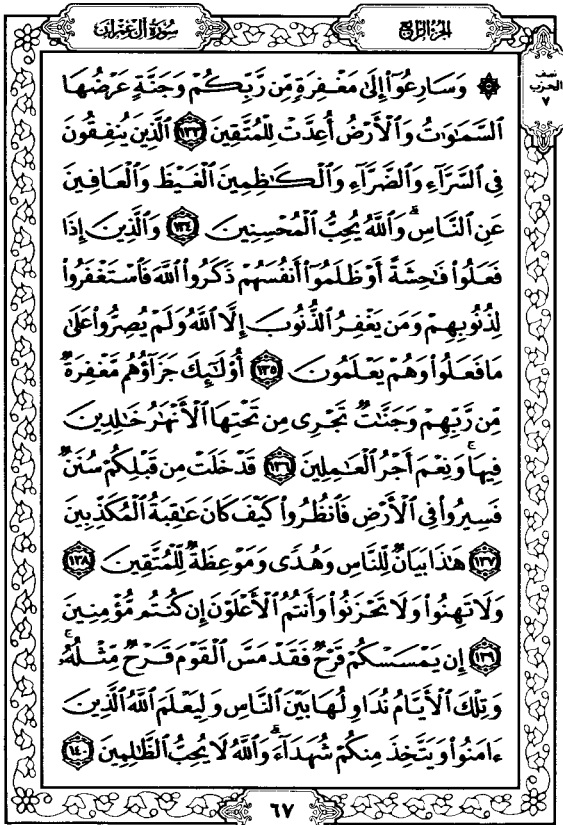 سورة آل عمران
الجزء الرابع
نصف
الحزب
٧
۞ وَسَارِعُوٓاْ إِلَىٰ مَغْفِرَةٍ مِّن رَّبِّكُمْ وَجَنَّةٍ عَرْضُهَا
ٱلسَّمَٰوَٰتُ وَٱلْأَرْضُ أُعِدَّتْ لِلْمُتَّقِينَ ١٣٣ ٱلَّذِينَ يُنفِقُونَ
فِى ٱلسَّرَّآءِ وَٱلضَّرَّآءِ وَٱلْكَٰظِمِينَ ٱلْغَيْظَ وَٱلْعَافِينَ
عَنِ ٱلنَّاسِ ۗ وَٱللَّهُ يُحِبُّ ٱلْمُحْسِنِينَ ١٣٤ وَٱلَّذِينَ إِذَا
فَعَلُواْ فَٰحِشَةً أَوْ ظَلَمُوٓاْ أَنفُسَهُمْ ذَكَرُواْ ٱللَّهَ فَٱسْتَغْفَرُواْ
لِذُنُوبِهِمْ وَمَن يَغْفِرُ ٱلذُّنُوبَ إِلَّا ٱللَّهُ وَلَمْ يُصِرُّواْ عَلَىٰ
مَا فَعَلُواْ وَهُمْ يَعْلَمُونَ ١٣٥ أُوْلَٰٓئِكَ جَزَآؤُهُم مَّغْفِرَةٌ
مِّن رَّبِّهِمْ وَجَنَّٰتٌ تَجْرِى مِن تَحْتِهَا ٱلْأَنْهَٰرُ خَٰلِدِينَ
فِيهَا ۚ وَنِعْمَ أَجْرُ ٱلْعَٰمِلِينَ ١٣٦ قَدْ خَلَتْ مِن قَبْلِكُمْ سُنَنٌ
فَسِيرُواْ فِى ٱلْأَرْضِ فَٱنظُرُواْ كَيْفَ كَانَ عَٰقِبَةُ ٱلْمُكَذِّبِينَ
١٣٧ هَٰذَا بَيَانٌ لِّلنَّاسِ وَهُدًى وَمَوْعِظَةٌ لِّلْمُتَّقِينَ ١٣٨
وَلَا تَهِنُواْ وَلَا تَحْزَنُواْ وَأَنتُمُ ٱلْأَعْلَوْنَ إِن كُنتُم مُّؤْمِنِينَ
١٣٩ إِن يَمْسَسْكُمْ قَرْحٌ فَقَدْ مَسَّ ٱلْقَوْمَ قَرْحٌ مِّثْلُهُۥ ۚ
وَتِلْكَ ٱلْأَيَّامُ نُدَاوِلُهَا بَيْنَ ٱلنَّاسِ وَلِيَعْلَمَ ٱللَّهُ ٱلَّذِينَ
ءَامَنُواْ وَيَتَّخِذَ مِنكُمْ شُهَدَآءَ ۗ وَٱللَّهُ لَا يُحِبُّ ٱلظَّٰلِمِينَ ١٤٠
٦٧